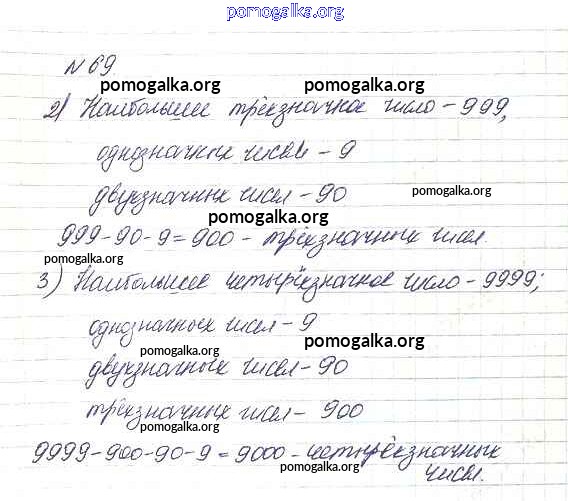 pomogalka.org
№ 69
pomogalka.org
2) Наибольшее трёхзначное число – 999,
однозначных чисел – 9
двузначных чисел – 90
pomogalka.org
pomogalka.org
999 - 90 - 9 = 900 - трёхзначных чисел.
pomogalka.org
3) Наибольшее четырёхзначное число – 9999;
однозначных чисел – 9
pomogalka.org
pomogalka.org
двузначных чисел – 90
трёхзначных чисел – 900
pomogalka.org
9999 - 900 - 90 - 9 = 9000 - четырёхзначных
чисел.
pomogalka.org
pomogalka.org